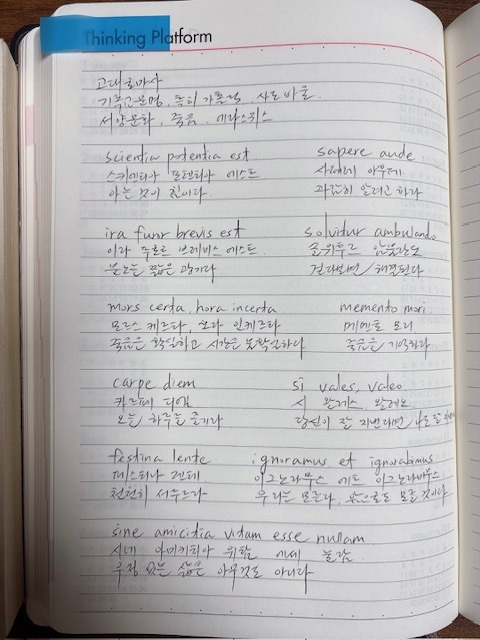 Thinking Platform
고대로마사
기독교문명, 특히 가톨릭, 사도바울
서양문화, 죽음, 에라스뮈스
scientia potentia est
sapere aude
스키엔티아 포텐티아 에스트
사페레 아우데
아는 것이 힘이다
과감히 알려고 하라
ira furor brevis est
solvidur ambulando
이라 푸로르 브레비스 에스트
솔위투르 암불란도
분노는 짧은 광기다
걷다보면 해결된다
mors certa, hora incerta
memento mori
모르스 케르타, 호라 인케르타
메멘토 모리
죽음은 확실하고 시간은 불확실하다
죽음을 기억하라
carpe diem
si vales, valeo
카르페 디엠
시 왈레스, 왈레오
오늘 하루를 즐기라
당신이 잘 지낸다면 나도 잘
festina lente
ignoramus et ignorabimus
페스티나 렌테
이그노라무스 에트 이그노라비무스
천천히 서두르라
우리는 모른다, 앞으로도 모를 것이다
sine amicidia vitam esse nullam
시네 아미키티아 위탐 에세 눌람
우정 없는 삶은 아무것도 아니다